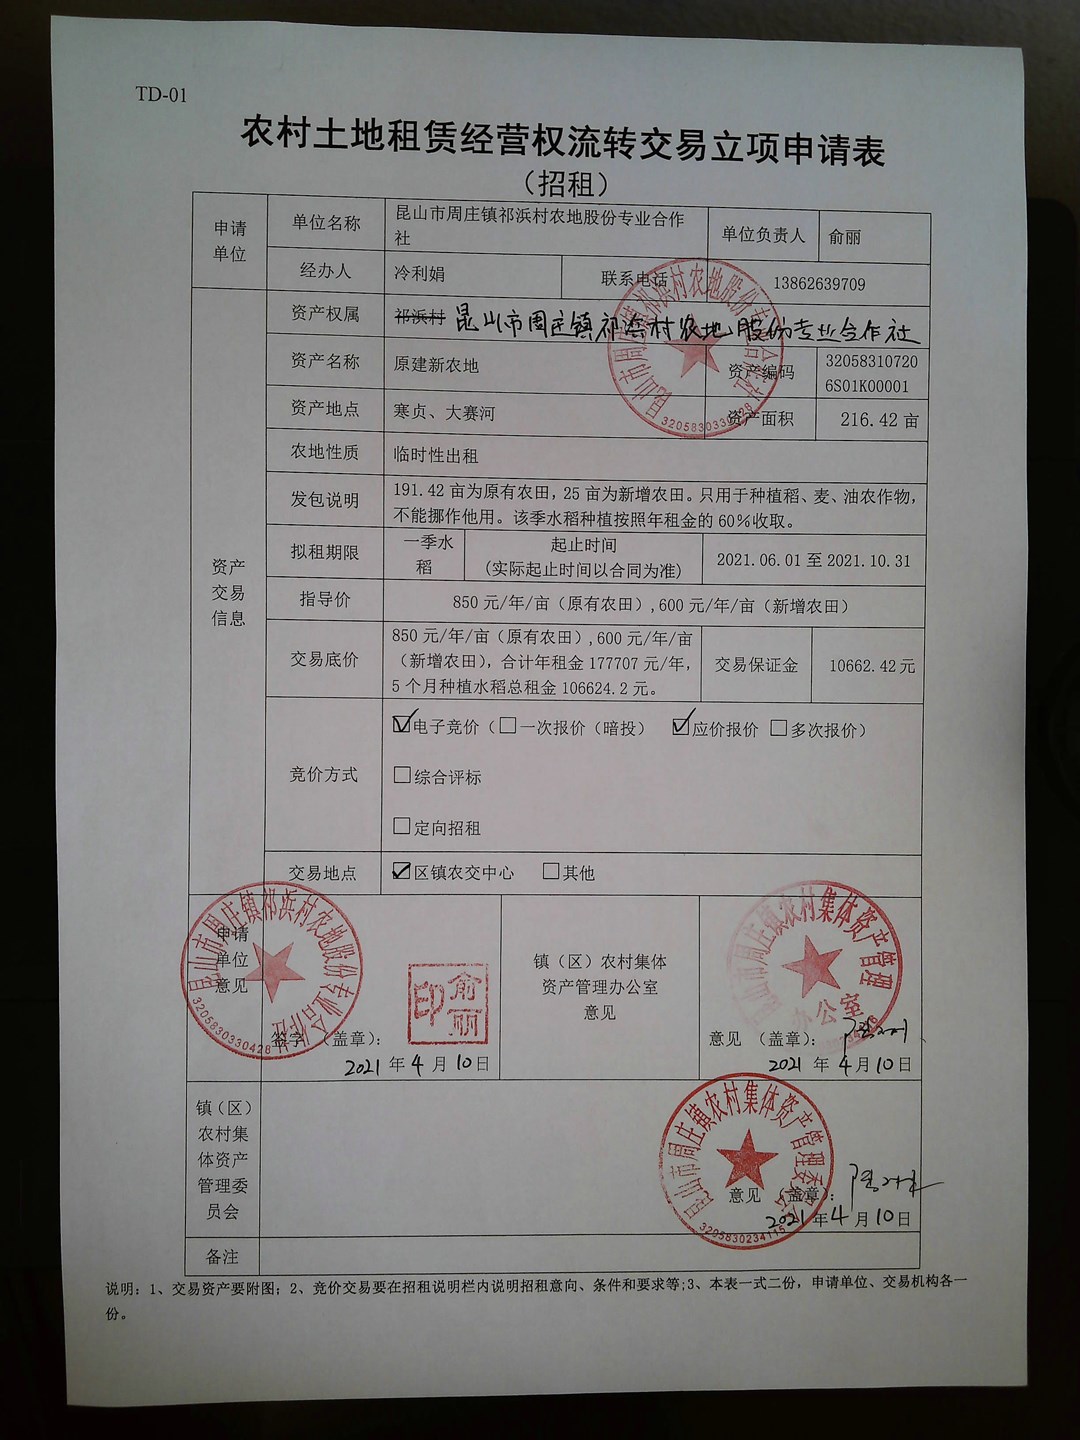 TD-01
农村土地租赁经营权流转交易立项申请表
（招租）
申请
单位
单位名称
昆山市周庄镇祁浜村农地股份专业合作
社
单位负责人
俞丽
经办人
冷利娟
联系电话
13862639709
资产
交易
信息
资产权属
祁浜村 昆山市周庄镇祁浜村农地股份专业合作社
资产名称
原建新农地
资产编码
32058310720
6S01K00001
资产地点
寒贞、大赛河
资产面积
216.42 亩
农地性质
临时性出租
发包说明
191.42 亩为原有农田，25 亩为新增农田。只用于种植稻、麦、油农作物，
不能挪作他用。该季水稻种植按照年租金的 60%收取。
拟租期限
一季水
稻
起止时间
(实际起止时间以合同为准)
2021.06.01 至 2021.10.31
指导价
850 元/年/亩（原有农田）,600 元/年/亩（新增农田）
交易底价
850 元/年/亩（原有农田）,600 元/年/亩
（新增农田），合计年租金 177707 元/年，
5 个月种植水稻总租金 106624.2 元。
交易保证金
10662.42 元
竞价方式
☑电子竞价（□一次报价（暗投） ☑应价报价 □多次报价）
□综合评标
□定向招租
交易地点
☑区镇农交中心 □其他
申请
单位
意见
签字 （盖章）：
2021 年 4 月 10 日
俞丽印
昆山市周庄镇祁浜村农地股份专业合作社
3205830330428
镇（区）农村集体
资产管理办公室
意见
昆山市周庄镇农村集体资产管理
办公室
意见 （盖章）：
2021 年 4 月 10 日
镇（区）
农村集
体资产
管理委
员会
昆山市周庄镇农村集体资产管理委员会
意见 （盖章）：
2021 年 4 月 10 日
3205830234115
备注
说明：1、交易资产要附图；2、竞价交易要在招租说明栏内说明招租意向、条件和要求等;3、本表一式二份，申请单位、交易机构各一
份。